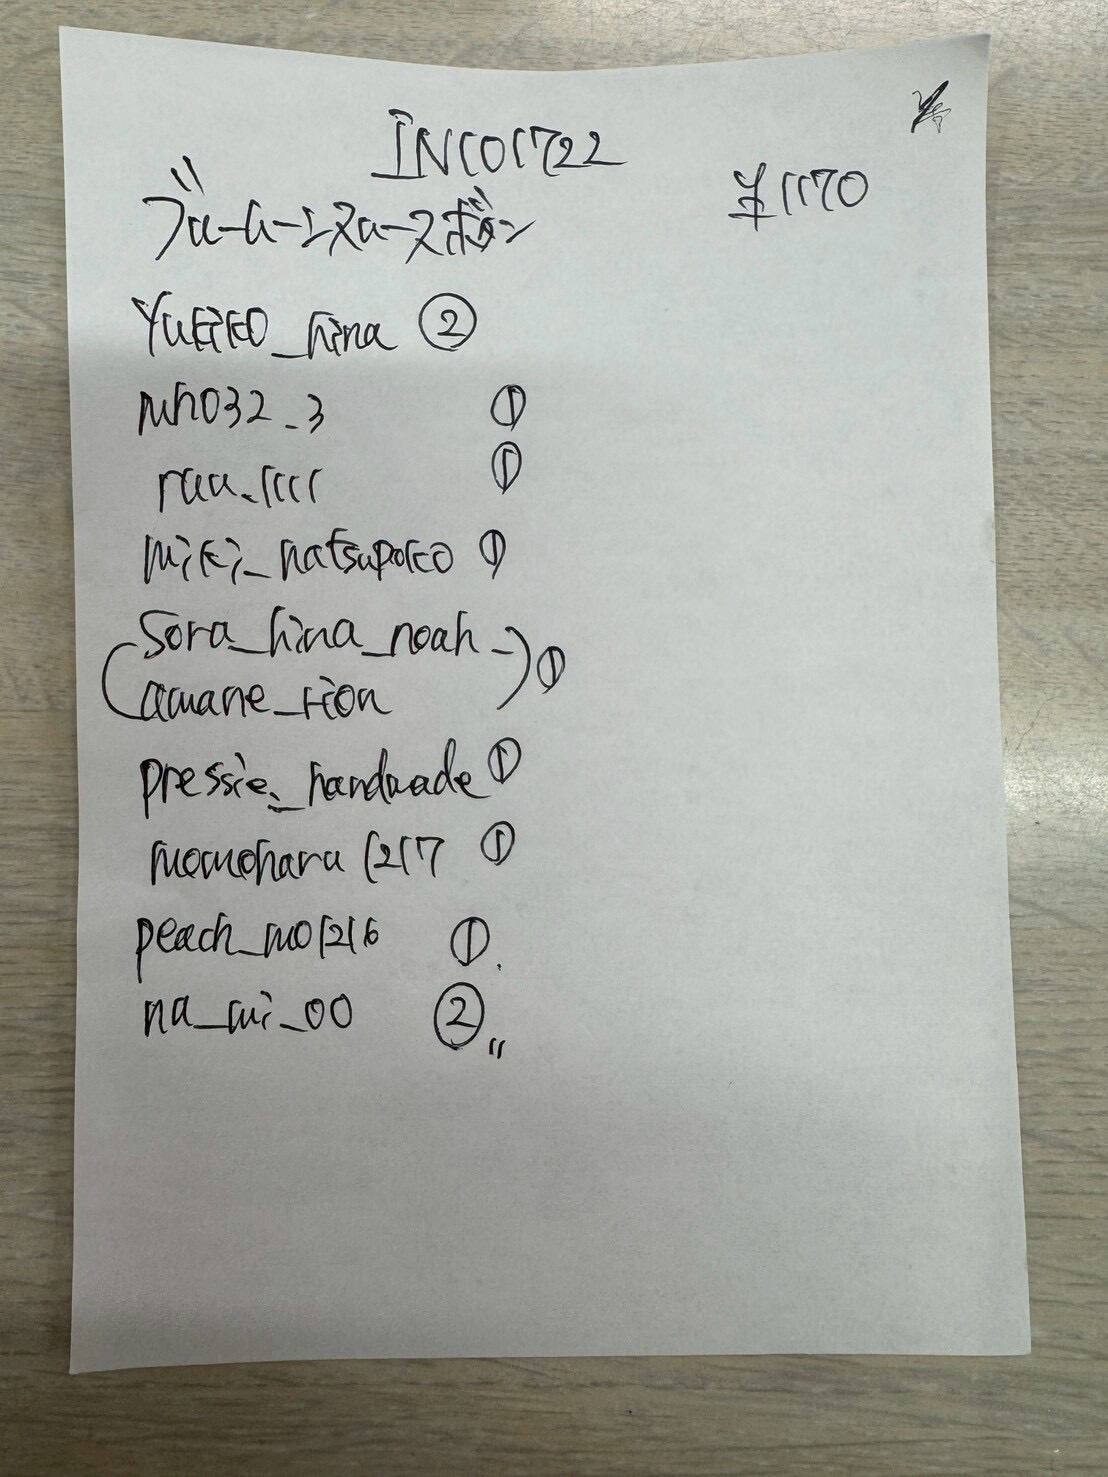 IN101722
¥1170
ブルームーンスヌースボタン
Yukiko_hina ②
mh032_3 ①
raa_1111 ①
miki_natsupoko ①
(sora_hina_noah_
amane_rion) ①
pressie._handmade ①
momoharu1217 ①
peach_mo1216 ①
na_mi_00 ②